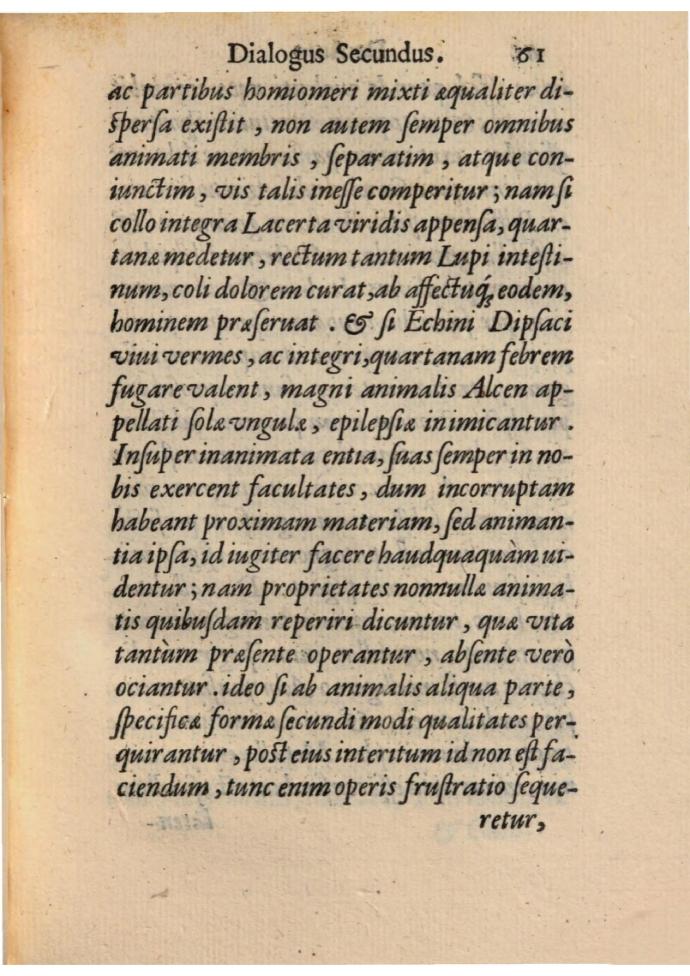 Dialogus Secundus. 61
ac partibus homiomeri mixti æqualiter di-
ſperſa exiſtit, non autem ſemper omnibus
animati membris, ſeparatim, atque con-
iunctim, vis talis ineſſe comperitur; nam ſi
collo integra Lacerta viridis appenſa, quar-
tanæ medetur, rectum tantum Lupi inteſti-
num, coli dolorem curat, ab affectuq́; eodem,
hominem præſeruat. & ſi Echini Dipſaci
viui vermes, ac integri, quartanam febrem
fugare valent, magni animalis Alcen ap-
pellati ſolæ vngulæ, epilepſiæ inimicantur.
Inſuper inanimata entia, ſuas ſemper in no-
bis exercent facultates, dum incorruptam
habeant proximam materiam, ſed animan-
tia ipſa, id iugiter facere haudquaquàm ui-
dentur; nam proprietates nonnullæ anima-
tis quibuſdam reperiri dicuntur, quæ vita
tantùm præſente operantur, abſente verò
ociantur. ideo ſi ab animalis aliqua parte,
ſpecificæ formæ ſecundi modi qualitates per-
quirantur, poſt eius interitum id non eſt fa-
ciendum, tunc enim operis fruſtratio ſeque-
retur,